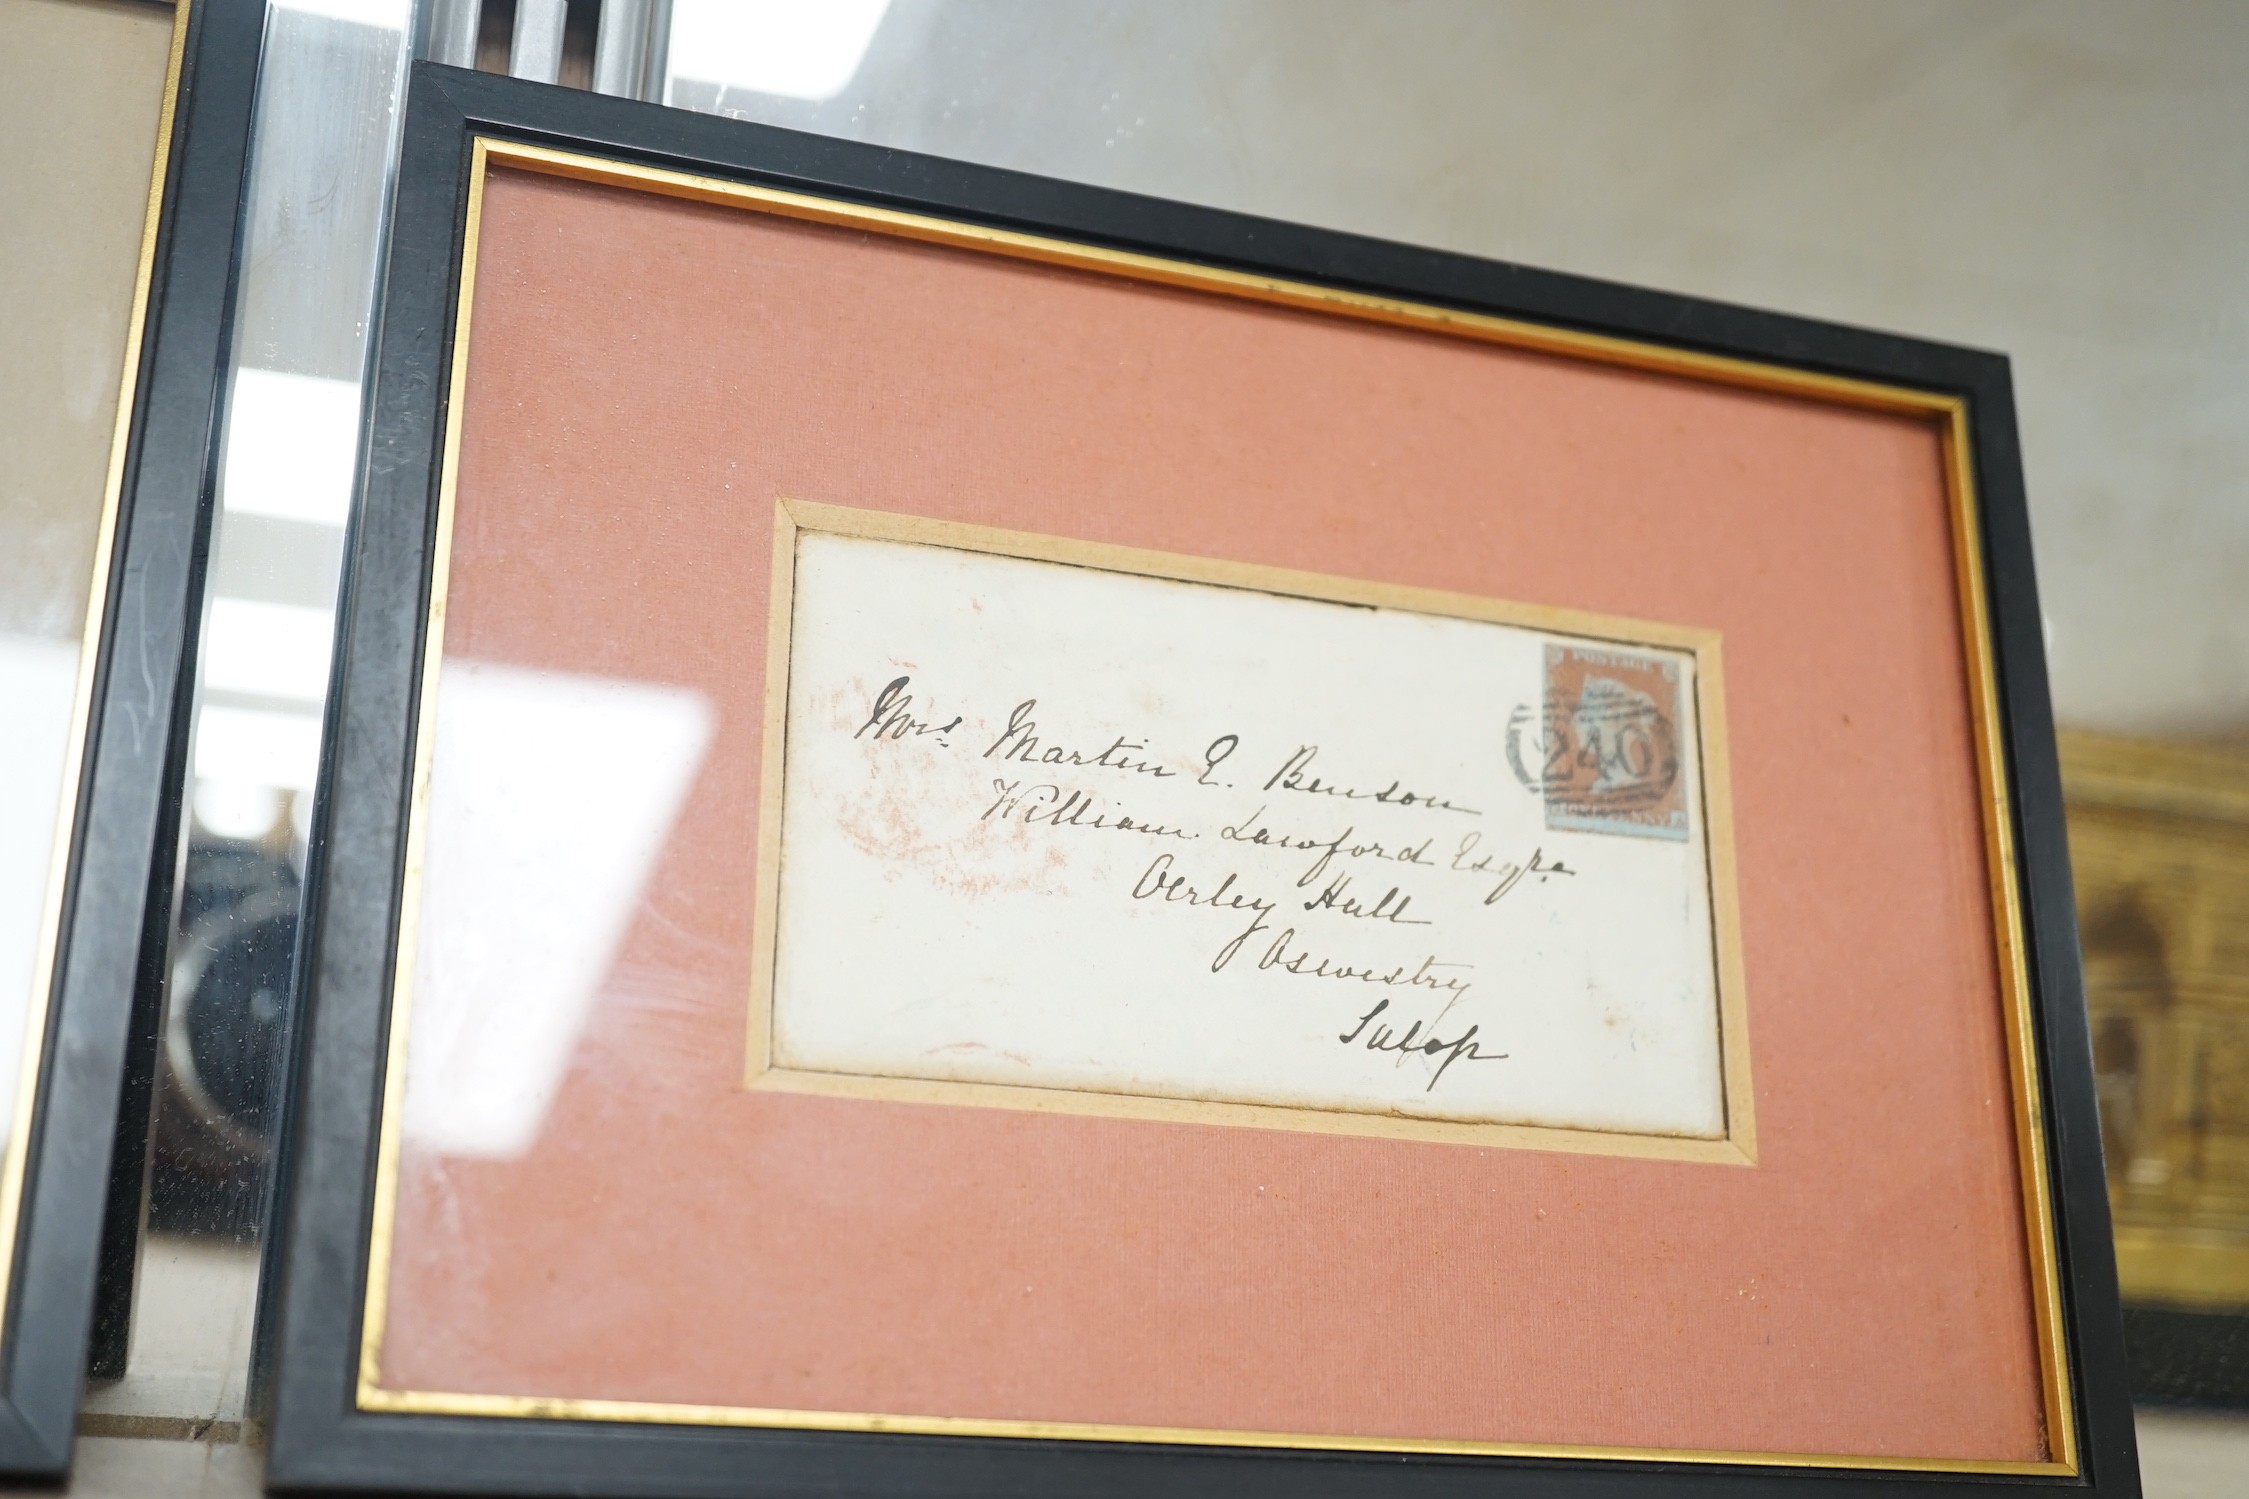 POSTAGE
240
Mrs. Martin E. Benson
William Lawford Esqre.
Oerley Hall
Oswestry
Salop